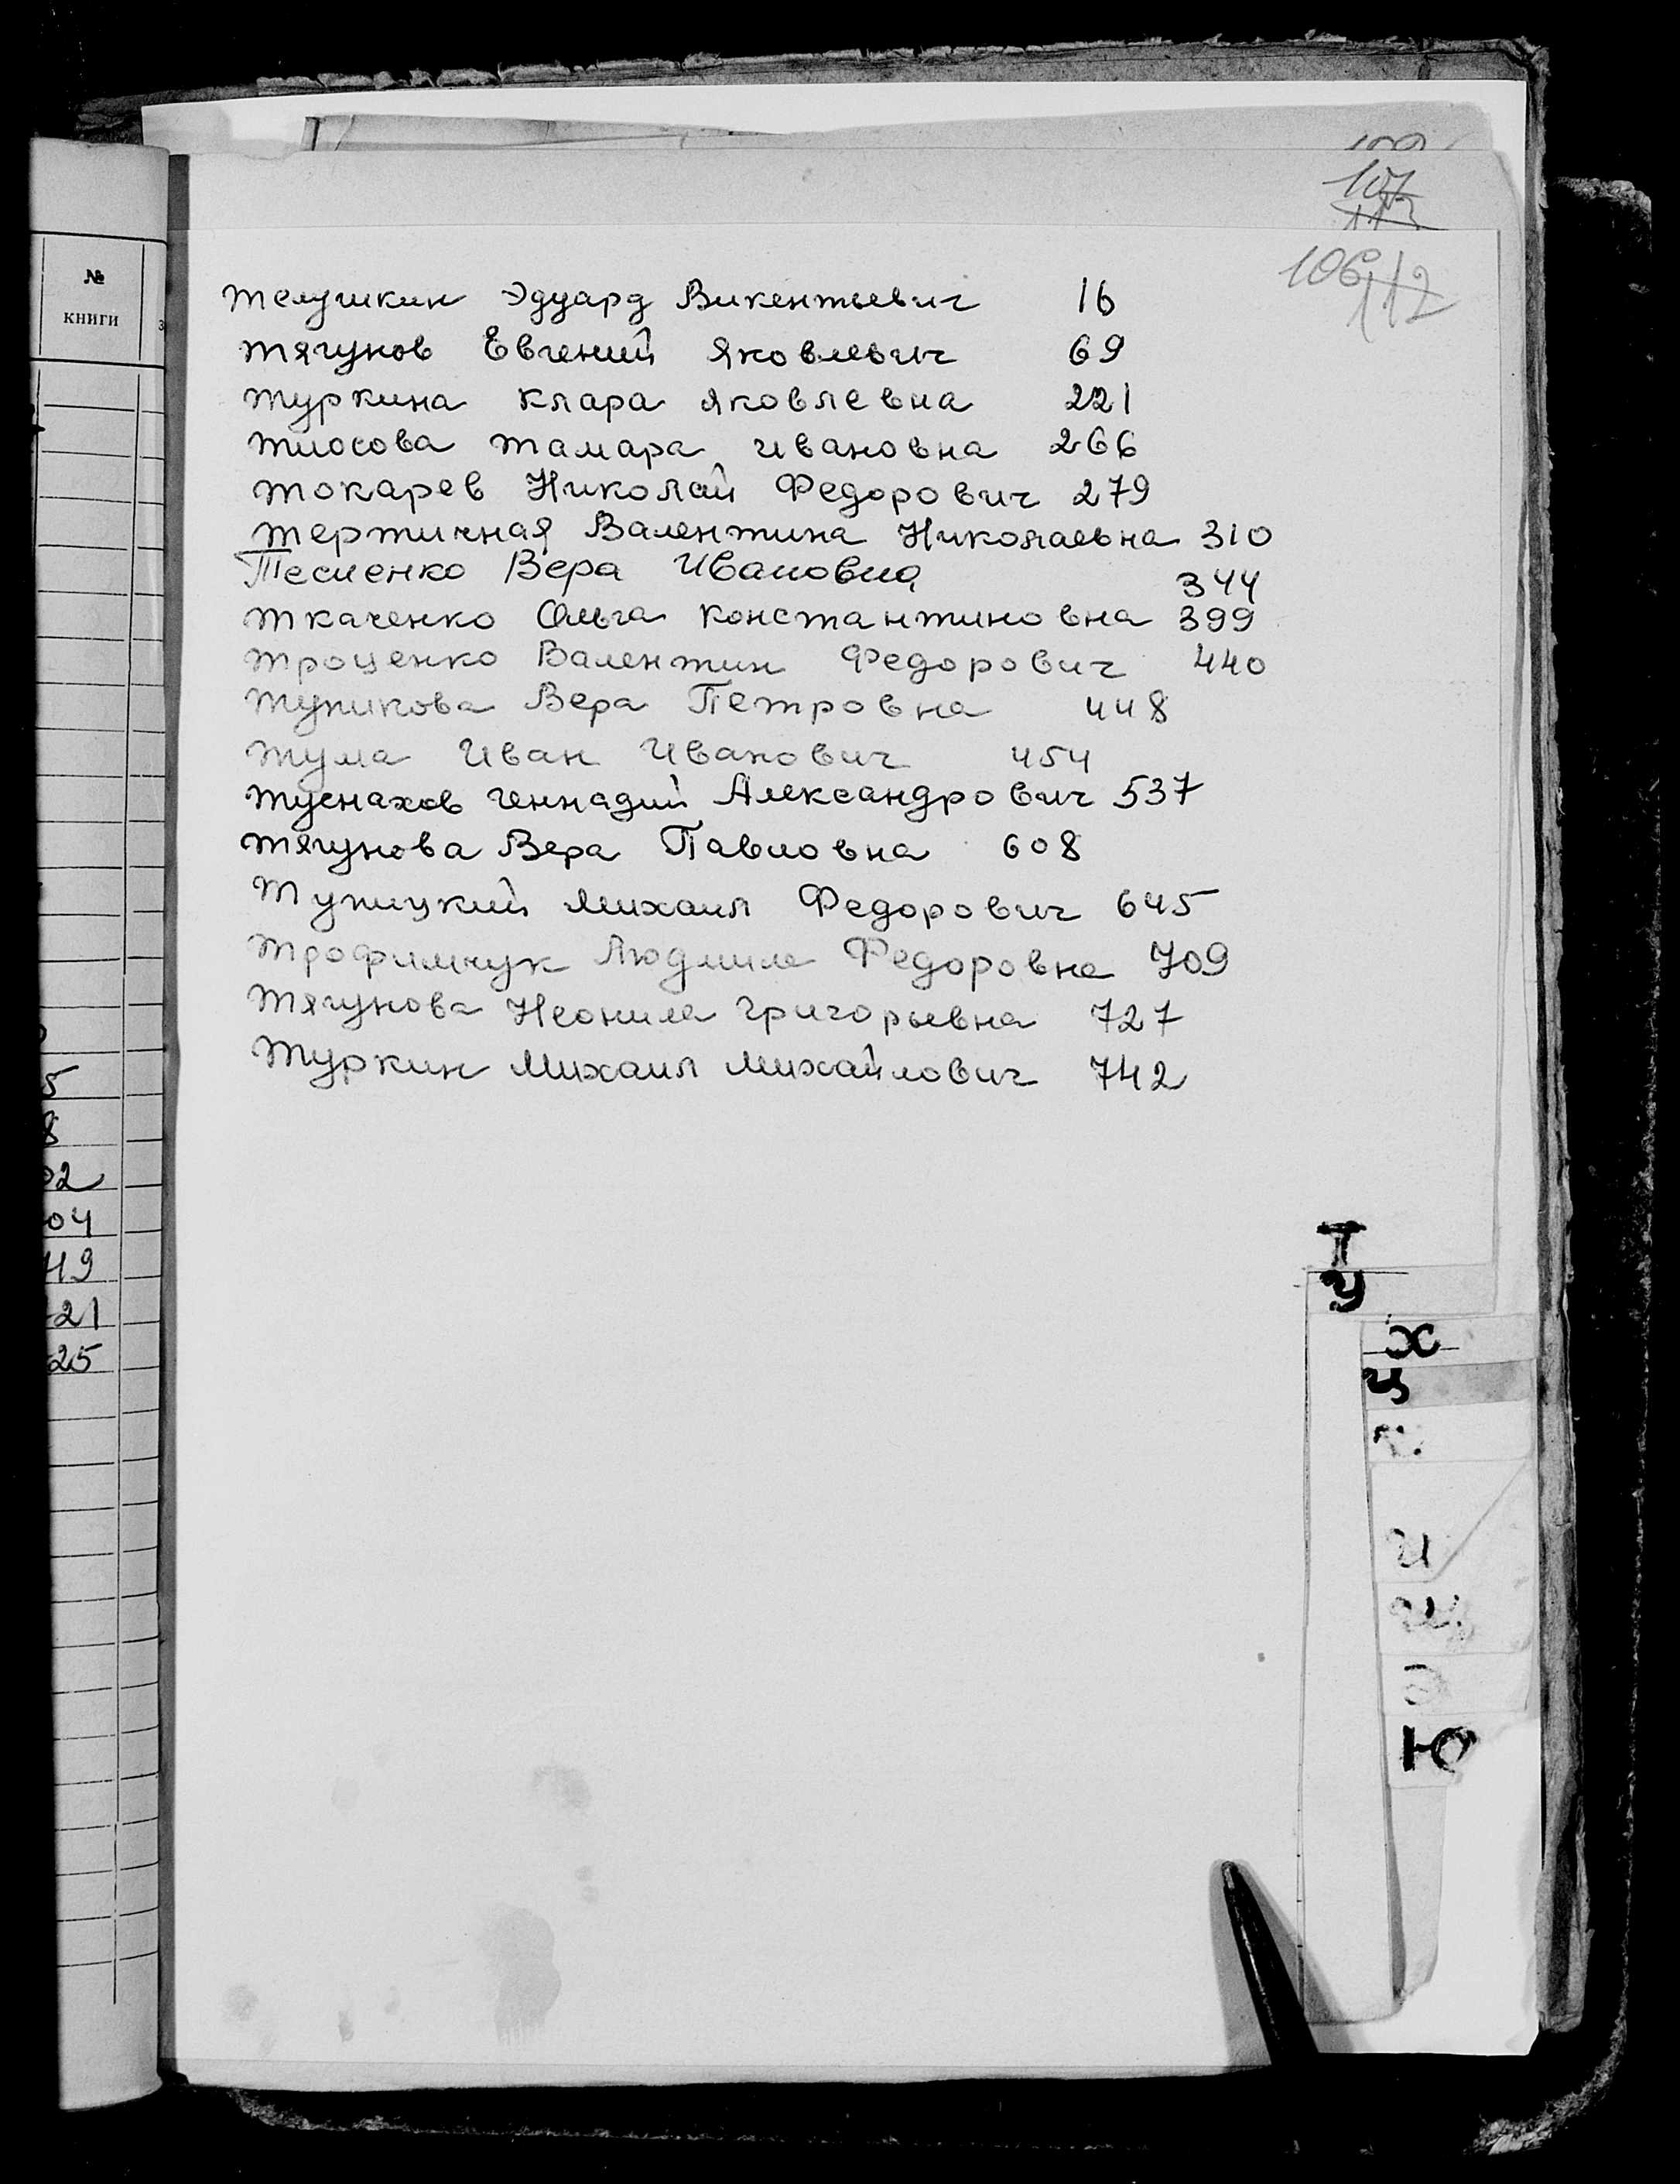 107
113
106 112
№
книги
Телушкин Эдуард Викентьевич 16
Тягунов Евгений Яковлевич 69
Туркина Клара Яковлевна 221
Тиосова Тамара Ивановна 266
Токарев Николай Федорович 279
Тертичная Валентина Николаевна 310
Тесленко Вера Ивановна 344
Ткаченко Ольга Константиновна 399
Троценко Валентин Федорович 440
Тупикова Вера Петровна 448
Тума Иван Иванович 454
Туснахов Геннадий Александрович 537
Тягунова Вера Павловна 608
Тупицкий Михаил Федорович 645
Трофимчук Людмила Федоровна 709
Тягунова Неонила Григорьевна 727
Туркин Михаил Михайлович 742
5
8
02
04
19
21
25
Т
У
Х
Ц
Ю